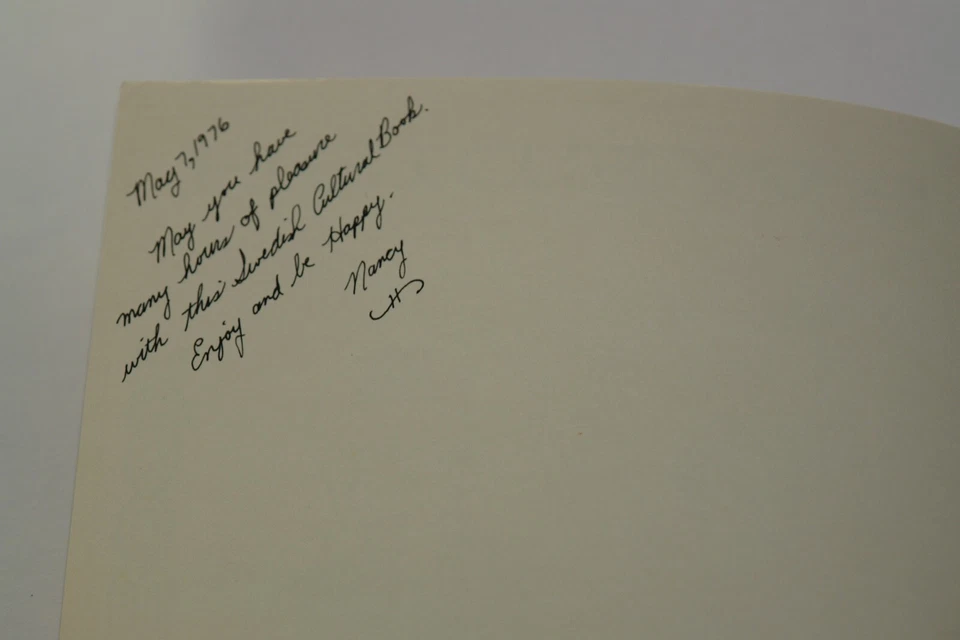 May 7, 1976
May you have
many hours of pleasure
with this Swedish Cultural Book.
Enjoy and be Happy.
Nancy
H